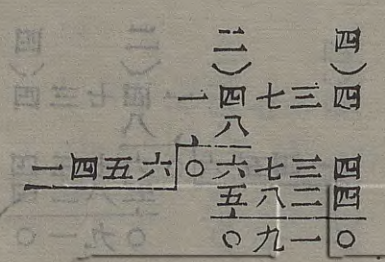 二） 四）
一四七三四
八
一四五六 〇六七三四
五八二四
〇九一〇